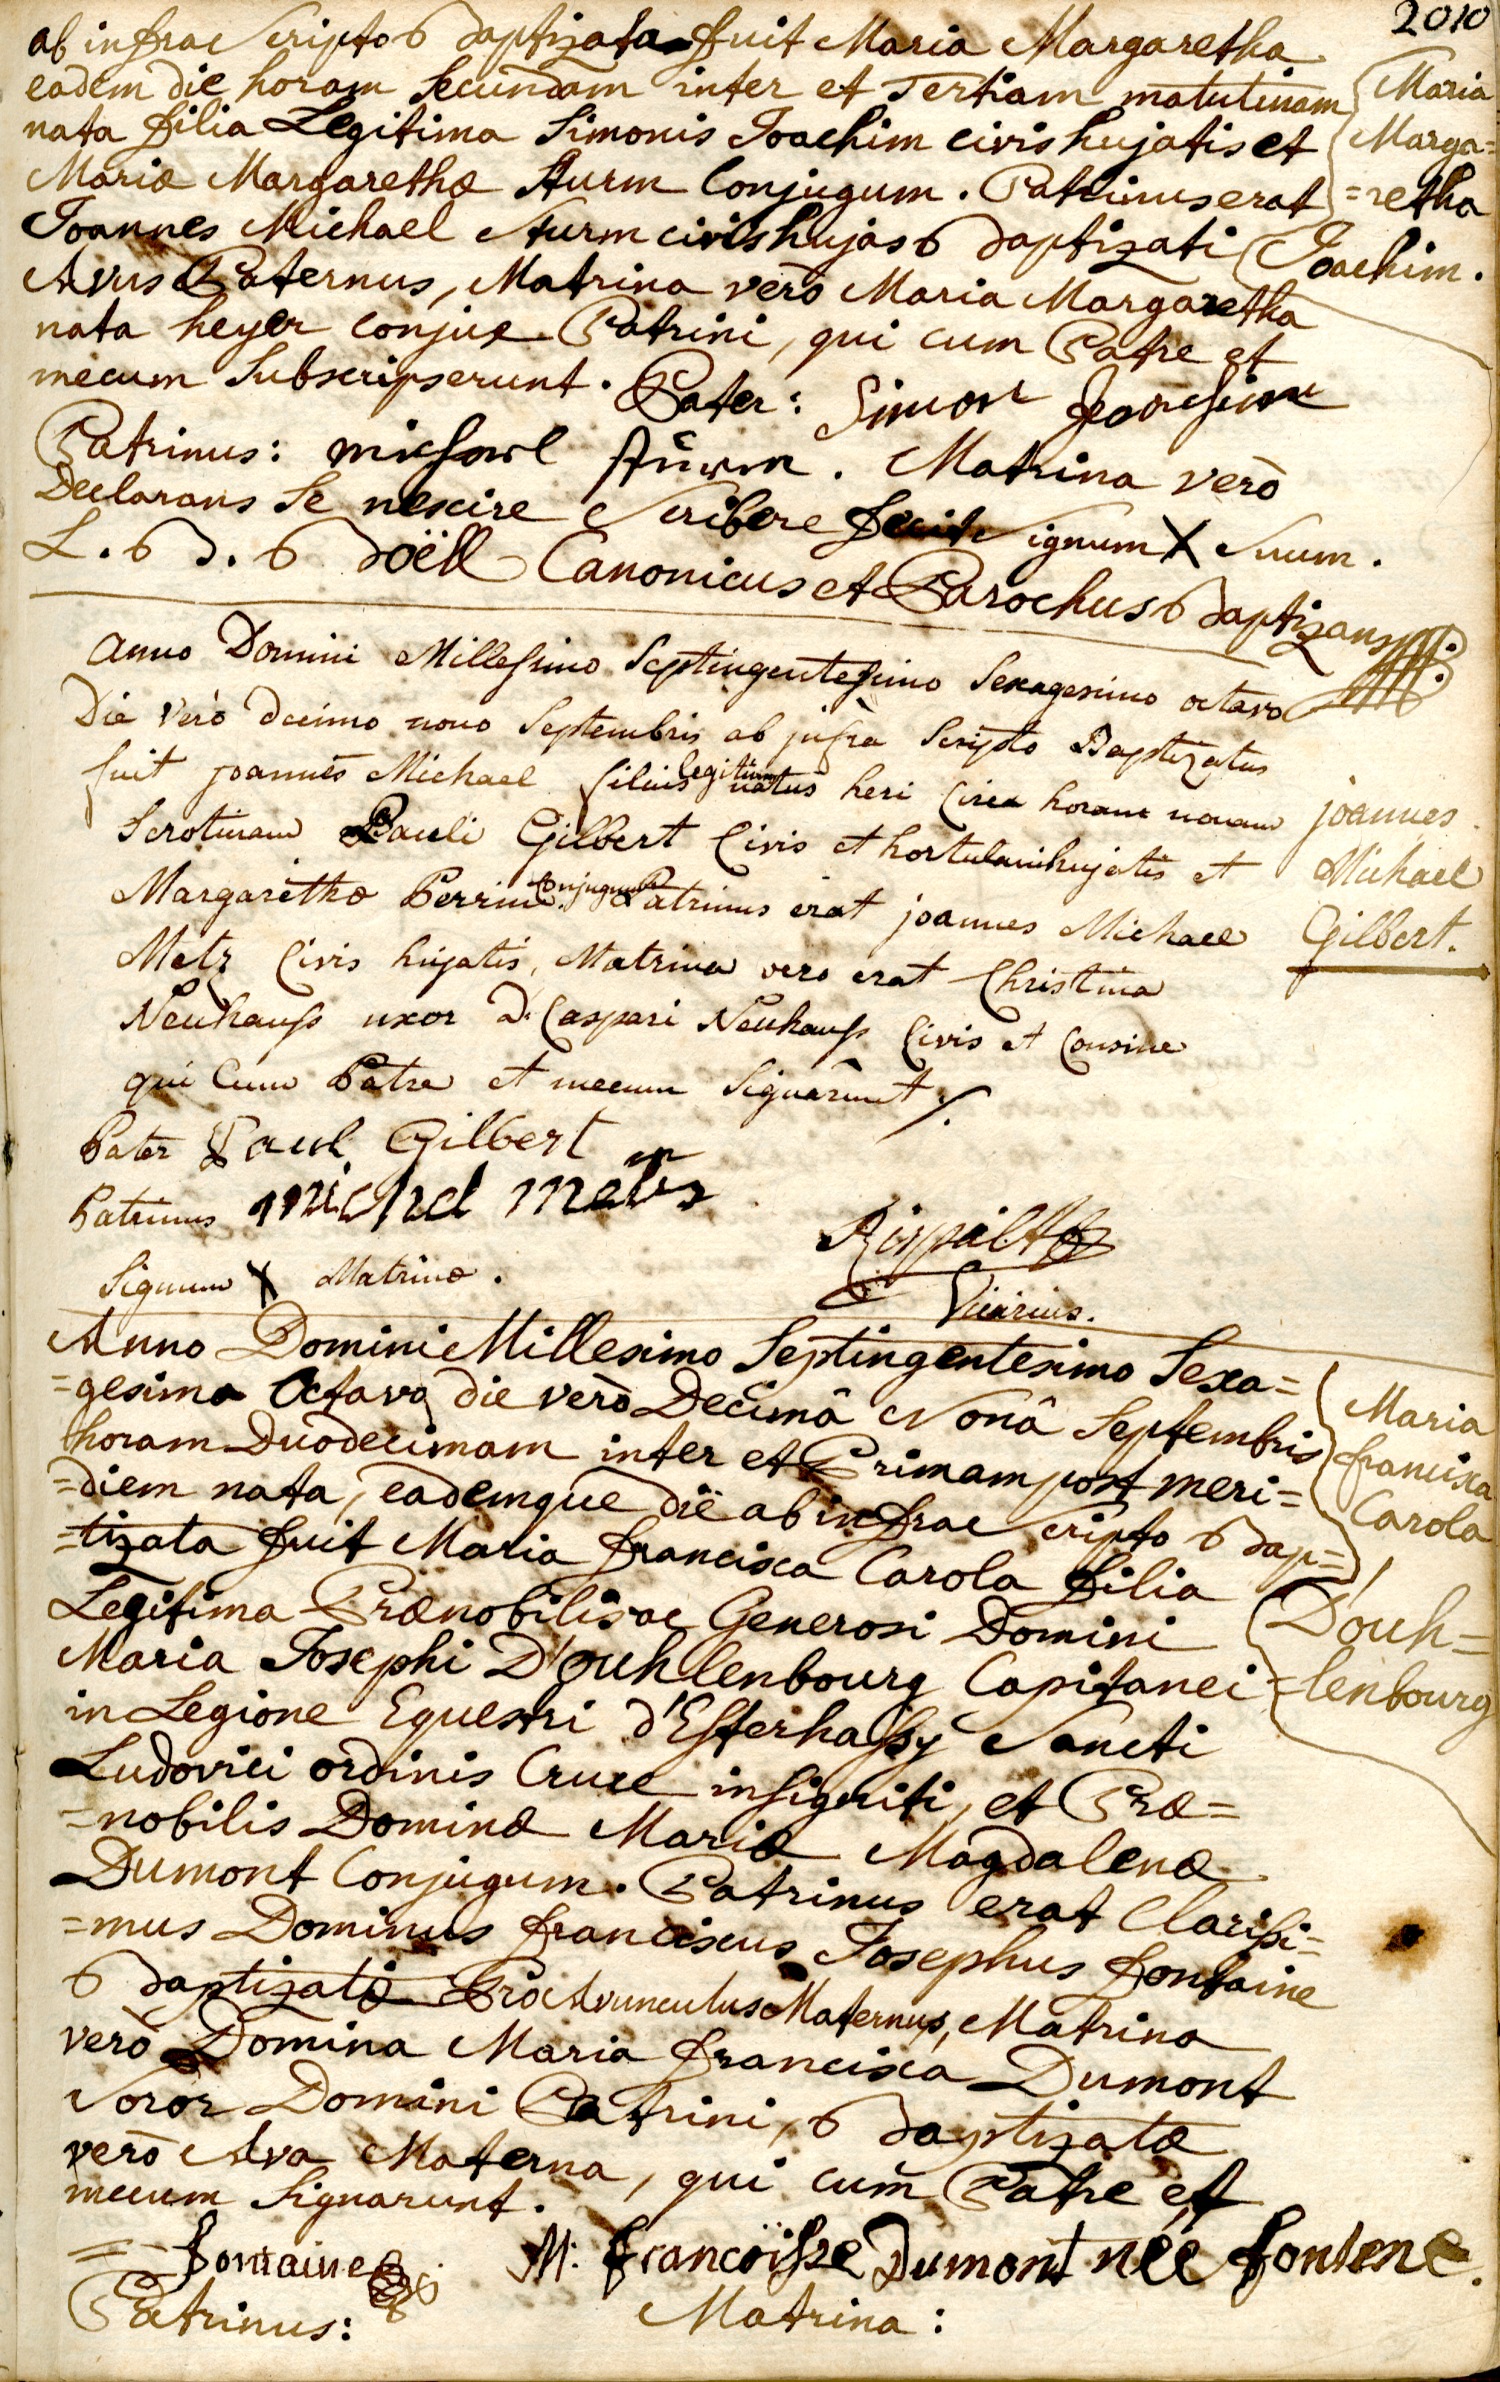 2010
ab infra Scripto Baptizata fuit Maria Margaretha
eadem die horam Secundam inter et Tertiam matutinam
nata filia Legitima Simonis Joachim civis hujatis et
Mariæ Margarethæ Sturm Conjugum. Patrinus erat
Joannes Michael Sturm civis hujas Baptizati
Avus Paternus, Matrina verò Maria Margaretha
nata heyer conjux Patrini, qui cum Patre et
mecum Subscripserunt. Pater: Simon Joachim
Patrinus: michael Sturm. Matrina verò
Declarans Se nescire Scribere fecit Signum X Suum.
L. B. Boëll Canonicus et Parochus Baptizans
Maria
Marga=
=retha
Joachim.
Anno Domini Millesimo Septingentesimo Sexagesimo octavo
Die Verò decimo nono Septembris ab infra Scripto Baptizatus
fuit joannes Michael filius legitimus natus heri Circa horam nonam
Serotinam Pauli Gilbert Civis et hortulani hujatis et
Margarethæ Perrin Conjugum. Patrinus erat joannes Michael
Metz Civis hujatis, Matrina vero erat Christina
Neuhauss uxor D. Caspari Neuhauss Civis et
qui Cum Patre et mecum Signarunt ∕.
joannes
Michael
Gilbert.
Pater Paul Gilbert
Patrinus michel metz
Signum X Matrinæ.
Vicarius.
Anno Domini Millesimo Septingentesimo Sexa=
=gesimo Octavo die verò Decimâ Nonâ Septembris
horam Duodecimam inter et Primam post meri=
=diem nata, eademque die ab infra Scripto Bap=
=tizata fuit Maria francisca Carola filia
Legitima Prænobilis ac Generosi Domini
Maria Josephi D'ouhlenbourg Capitanei
in Legione Equestri d'Esterhassy Sancti
Ludovici ordinis Cruce insigniti, et Præ=
=nobilis Dominæ Mariæ Magdalenæ
Dumont Conjugum. Patrinus erat Clarissi=
=mus Dominus franciscus Josephus fontaine
Baptizatæ Pro Avunculus Maternus, Matrina
verò Domina Maria francisca Dumont
Soror Domini Patrini, Baptizatæ
verò Ava Materna, qui cum Patre et
mecum Signarunt.
Maria
francisca
Carola
D'ouh=
=lenbourg
fontaine M: francoisse Dumont née fontene.
Patrinus: Matrina: